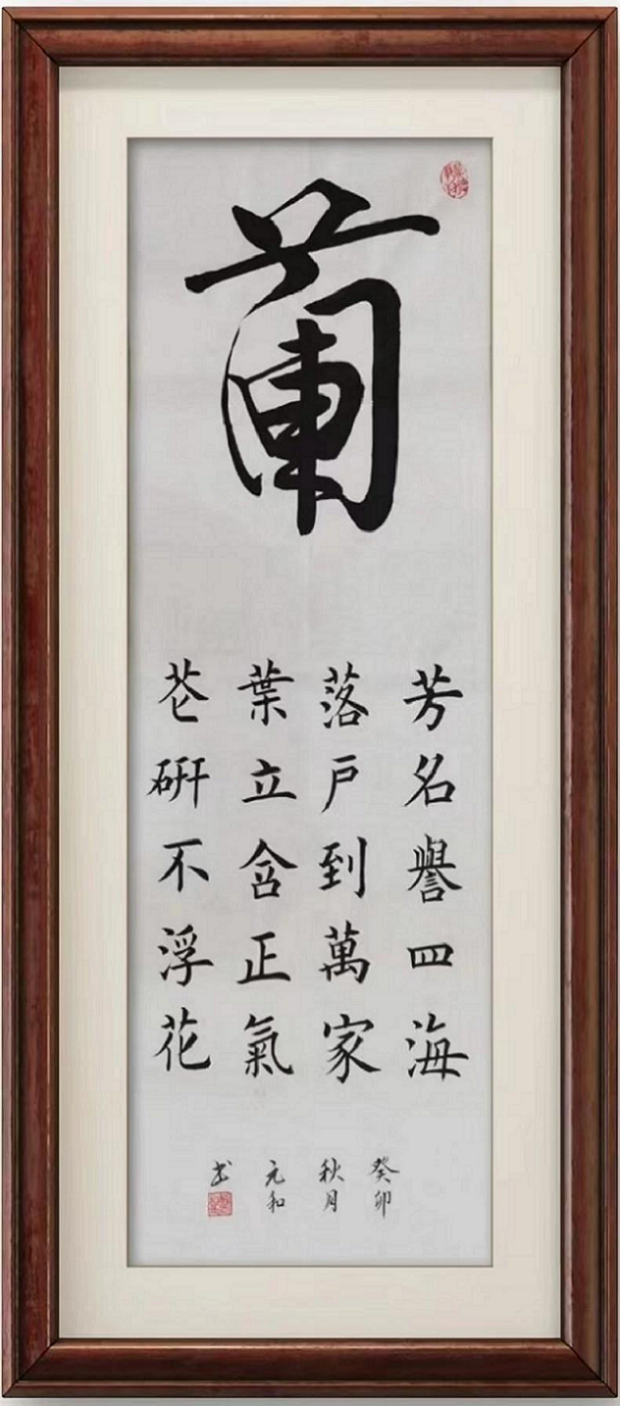 蘭
芳名譽四海
落戶到萬家
葉立含正氣
芲硏不浮花
癸卯
秋月
元和
书